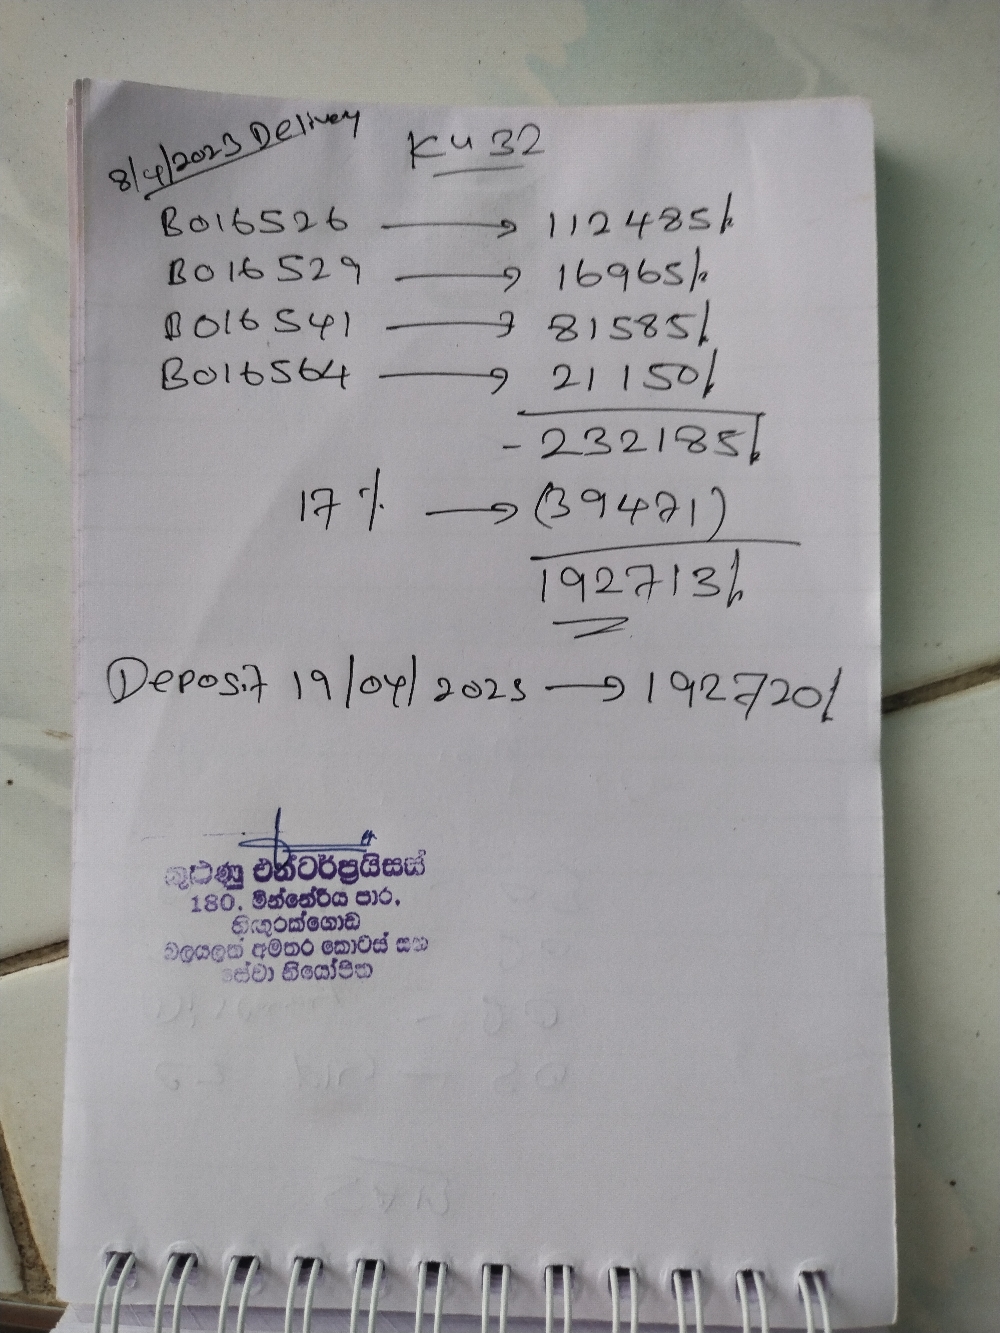 8/4/2023 Delivery
KU 32
B016526 → 112485/-
B016529 → 16965/-
B016541 → 81585/-
B016564 → 21150/-
- 232185/-
17 % → (39471)
192713/-
Deposit 19/04/2023 → 192720/-
එන්ටර්ප්‍රයිසස්
180. මින්නේරිය පාර,
හිඟුරක්ගොඩ
අමතර කොටස් සහ
සේවා නියෝජිත